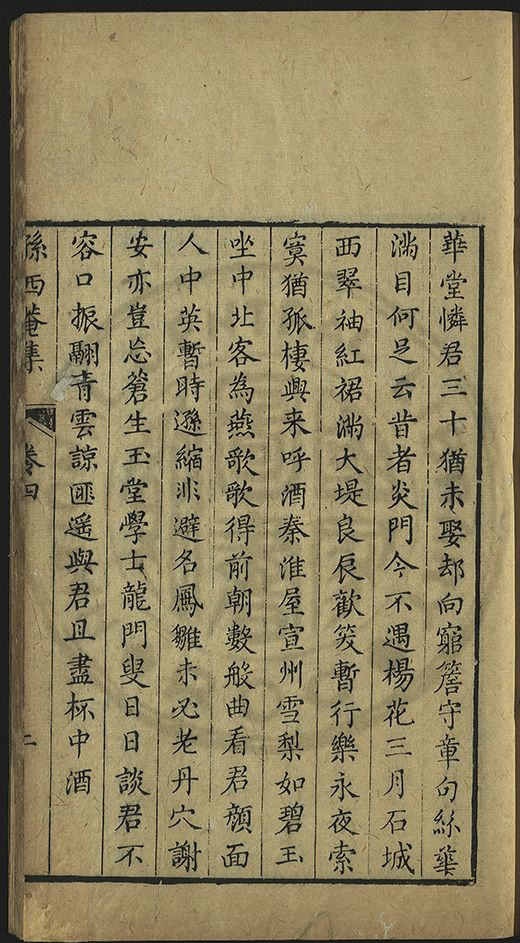 華堂憐君三十猶未娶却向窮簷守章句絲華
滿目何足云昔者炎門今不遇楊花三月石城
西翠袖紅裙滿大堤良辰歡笑暫行樂永夜索
寞猶孤棲興来呼酒秦淮屋宣州雪梨如碧玉
坐中北客為燕歌歌得前朝數般曲看君顔面
人中英暫時遜縮非避名鳳雛未必老丹穴謝
安亦豈忘蒼生玉堂學士龍門叟日日談君不
容口振翮青雲諒匪遥與君且盡杯中酒
孫西菴集 卷四 二